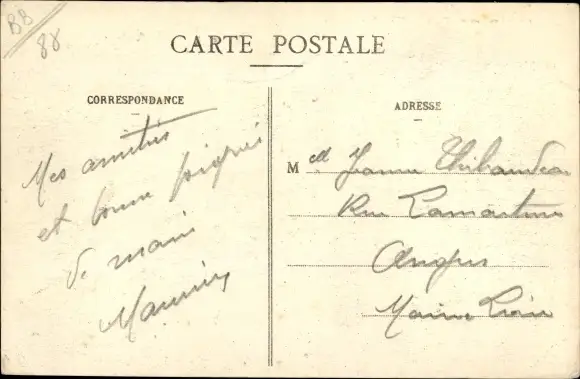 B8
88
CARTE POSTALE
CORRESPONDANCE
Mes amitiés
et bonne poignée
de main
Maurice
ADRESSE
Melle Jeanne Thibaudeau
Rue Lamartine
Angers
Maine Loire